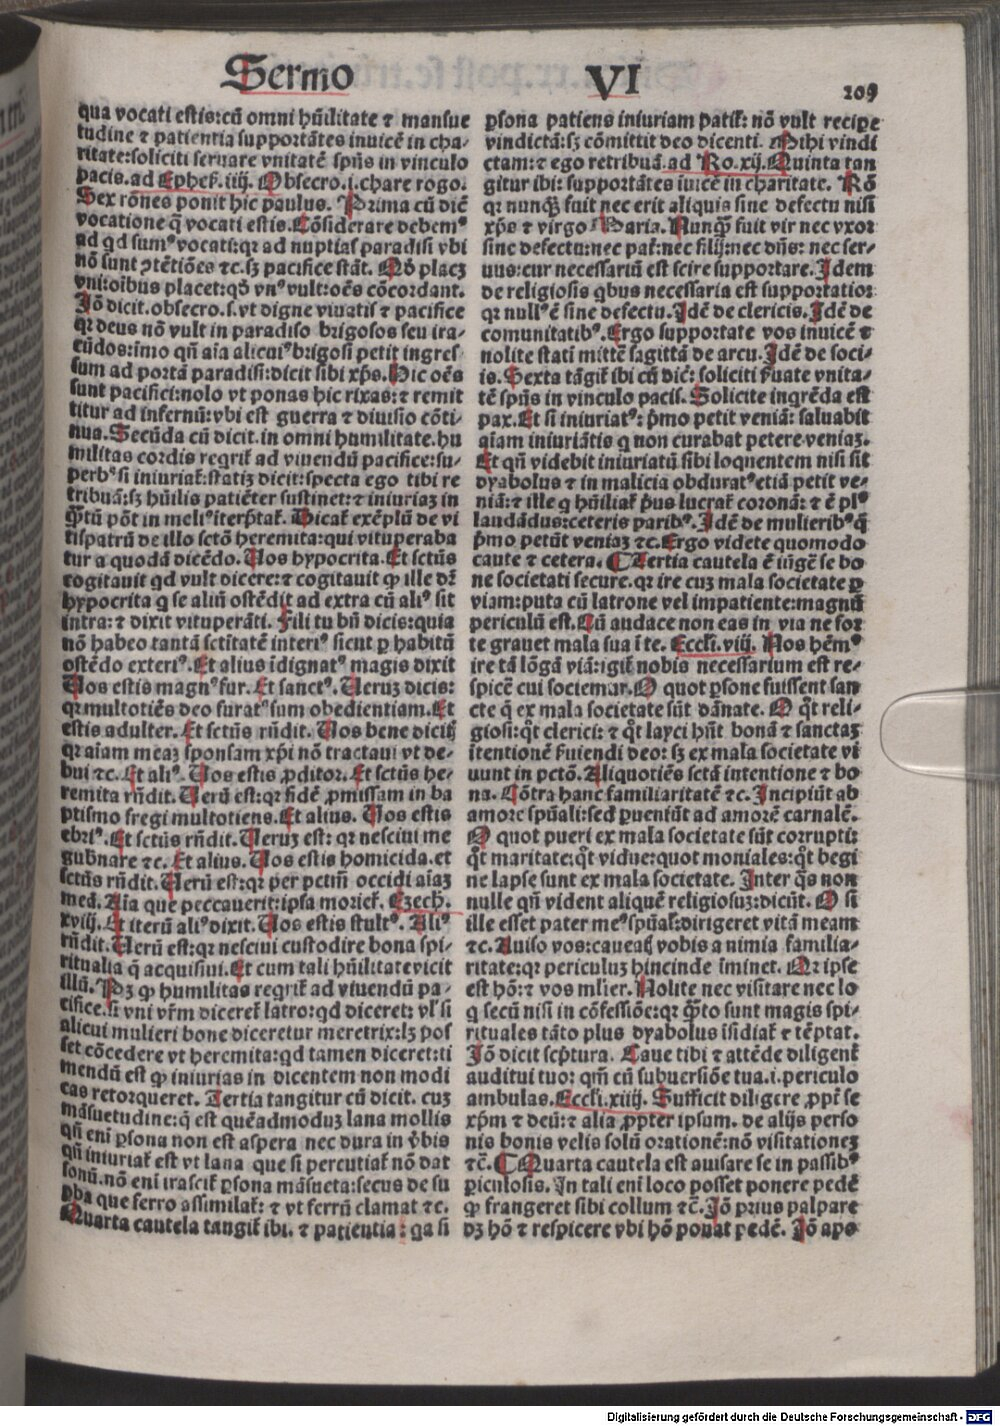 Sermo VI 109
qua vocati estis:cū omni hūilitate ⁊ mansue
tudine ⁊ patientia supportātes inuicē in cha-
ritate:soliciti seruare vnitatē spūs in vinculo
pacis.ad Ephes.iiij. Obsecro.i.chare rogo.
Sex rōnes ponit hic paulus. Prima cū dicē
vocatione q̄ vocati estis. Cōsiderare debemꝰ
ad qd sumꝰ vocati:qꝛ ad nuptias paradisi vbi
nō sunt ꝯtētiōes ⁊c.sꝫ pacifice stāt. Qd placꝫ
vni:oībus placet:qd vnꝰ vult:oēs cōcordant.
Iō dicit.obsecro.s.vt digne viuatis ⁊ pacifice
qꝛ deus nō vult in paradiso brigosos seu ira-
cūdos:imo qn̄ aīa alicuiꝰ brigosi petit ingres
sum ad portā paradisi:dicit sibi xp̄s. Hic oēs
sunt pacifici:nolo vt ponas hic rixas:⁊ remit
titur ad infernū:vbi est guerra ⁊ diuisio cōti-
nua. Secūda cū dicit.in omni humilitate.hu
militas cordis reqrit̄ ad viuendū pacifice:su-
perbꝰ si iniuriat̄:statiꝫ dicit:specta ego tibi re
tribuā:sꝫ hūilis patiēter sustinet:⁊ iniuriaꝫ in
q̄ꝫtū pōt in meliꝰ iterp̄tat̄. Dicat̄ exēplū de vi
tispatrū de illo sctō heremita:qui vituperaba
tur a quodā dicēdo. Uos hypocrita. Et sctūs
cogitauit qd vult dicere:⁊ cogitauit ꝙ ille dr̄
hypocrita q se aliū ostēdit ad extra cū aliꝰ sit
intra:⁊ dixit vituperāti. Fili tu bn̄ dicis:quia
nō habeo tantā sctītatē interiꝰ sicut ꝑ habitū
ostēdo exteriꝰ. Et alius īdignatꝰ magis dixit
Uos estis magnꝰ fur. Et sanctꝰ. Ueruꝫ dicis:
qꝛ multotiēs deo furatꝰ sum obedientiam. Et
estis adulter. Et sctūs rn̄dit. Uos bene dicitꝭ
qꝛ aīam meaꝫ sponsam xp̄i nō tractaui vt de-
bui ⁊c. Et aliꝰ. Uos estis ꝓditor. Et sctūs he-
remita rn̄dit. Uerū est:qꝛ fidē ꝓmissam in ba
ptismo fregi multotiens. Et alius. Uos estis
ebriꝰ. Et sctūs rn̄dit. Ueruꝫ est: qꝛ nesciui me
gubnare ⁊c. Et alius. Uos estis homicida.et
sctūs rn̄dit. Uerū est:qꝛ per pctm̄ occidi aīaꝫ
meā. Aīa que peccauerit:ipsa moriet̄. Ezech.
xviij. Et iterū aliꝰ dixit. Uos estis stultꝰ. Aliꝰ
rn̄dit. Uerū est:qꝛ nesciui custodire bona spi-
ritualia q̄ acquisiui. Et cum tali hūilitate vicit
illū. Pꝫ ꝙ humilitas reqrit̄ ad viuendū pa-
cifice.si vni vr̄m diceret̄ latro:qd diceret: vl̓ si
alicui mulieri bone diceretur meretrix:lꝫ pos
set cōcedere vt heremita:qd tamen diceret:ti
mendū est ꝙ iniurias in dicentem non modi
cas retorqueret. Tertia tangitur cū dicit. cuꝫ
māsuetudine:q̄ est quēadmoduꝫ lana mollis
qn̄ enī ꝑsona non est aspera nec dura in v̓bis
qn̄ iniuriat̄ est vt lana que si percutiat̄ nō dat
sonū.nō enī irascit̄ ꝑsona māsueta:secus de su
ꝑba que ferro assimilat̄: ⁊ vt ferrū clamat ⁊c.
Quarta cautela tangit̄ ibi. ⁊ patientia: qa si
ꝑsona patiens iniuriam patit̄: nō vult recipe
vindictā:sꝫ cōmittit deo dicenti. Mihi vindi
ctam:⁊ ego retribuā.ad Ro.xij. Quinta tan
gitur ibi: supportātes iuicē in charitate. Rō
qꝛ nunqꝫ fuit nec erit aliquis sine defectu nisi
xp̄s ⁊ virgo Maria. Nunqꝫ fuit vir nec vxor
sine defectu:nec pat̄:nec filij:nec dn̄s: nec ser-
uus:cur necessariū est scire supportare. Idem
de religiosis qbus necessaria est supportatio:
qꝛ nullꝰ ē sine defectu. Idē de clericis. Idē de
comunitatibꝰ. Ergo supportate vos inuicē ⁊
nolite statī mittē sagittā de arcu. Idē de soci-
is. Sexta tāgit̄ ibi cū dicē: soliciti s̓uate vnita-
tē spūs in vinculo pacis. Solicite inq̄rēda est
pax. Et si iniuriatꝰ: p̄mo petit veniā: saluabit
aīam iniuriātis q non curabat petere veniaꝫ.
Et qn̄ videbit iniuriatū sibi loquentem nisi sit
dyabolus ⁊ in malicia obduratꝰ etiā petit ve-
niā: ⁊ ille q hūiliat̄ p̄us lucrat̄ coronā: ⁊ ē plꝰ
laudādus:ceteris paribꝰ. Idē de mulieribꝰ q̄
p̄mo petūt veniaꝫ ⁊c. Ergo videte quomodo
caute ⁊ cetera. ¶ Tertia cautela ē iūgē se bo
ne societati secure.qꝛ ire cuꝫ mala societate ꝑ
viam:puta cū latrone vel impatiente:magnū
periculū est. Cū audace non eas in via ne for
te grauet mala sua ī te. Eccli.viij. Nos hēmꝰ
ire tā lōgā viā:igit̄ nobis necessarium est re-
spicē cui sociemur. O quot ꝑsone fuissent san
cte q̄ ex mala societate sūt dānate. O qt̄ reli-
giosi:qt̄ clerici: ⁊ qt̄ layci hn̄t bonā ⁊ sanctaꝫ
ītentionē s̓uiendi deo: sꝫ ex mala societate vi
uunt in pctō. Aliquotiēs sctā intentione ⁊ bo
na. Cōtra hanc familiaritatē ⁊c. Incipiūt ab
amore spūali:sed ꝑuentūt ad amorē carnalē.
O quot pueri ex mala societate sūt corrupti:
qt̄ maritate:qt̄ vidue:quot moniales:qt̄ begi
ne lapse sunt ex mala societate. Inter q̄s non
nulle qn̄ vident aliquē religiosuꝫ:dicūt. O si
ille esset pater meꝰ spūal̓:dirigeret vitā meam
⁊c. Auiso vos:caueat̓ vobis a nimia familia-
ritate:qꝛ periculuꝫ hincinde iminet. Qꝛ ipse
est hō: ⁊ vos ml̓ier. Nolite nec visitare nec lo
q secū nisi in cōfessiōe:qꝛ q̄ꝫto sunt magis spi-
rituales tāto plus dyabolus īsidiat̄ ⁊ tēptat.
Iō dicit scp̄tura. Caue tibi ⁊ attēde diligent̄
auditui tuo: qm̄ cū subuersiōe tua.i.periculo
ambulas. Eccli.xiiij. Sufficit diligere ꝓpt̄ se
xp̄m ⁊ deū:⁊ alia ꝓpter ipsum. de alijs perso
nis bonis velis solū orationē:nō visitationeꝫ
⁊c̄. ¶ Quarta cautela est auisare se in passibꝰ
ꝑiculosis. In tali enī loco posset ponere pedē
ꝙ frangeret sibi collum ⁊c̄. Iō prius palpare
dꝫ hō ⁊ respicere vbi hō ponat pedē. Iō apo
Digitalisierung gefördert durch die Deutsche Forschungsgemeinschaft - DFG